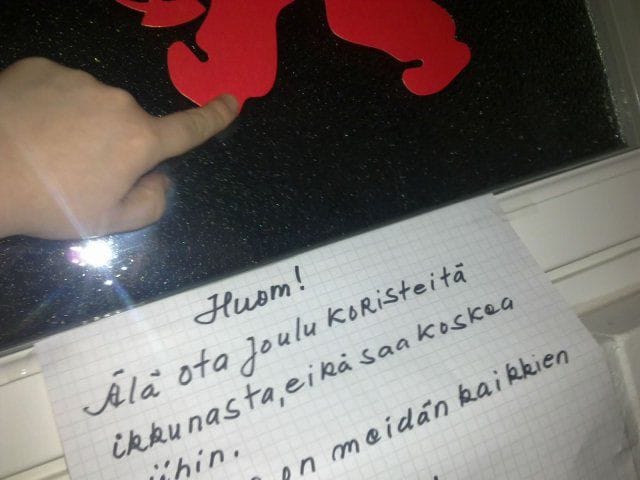 Huom!
Älä ota joulu koristeitä
ikkunasta, eikä saa koskea
on meidän kaikkien